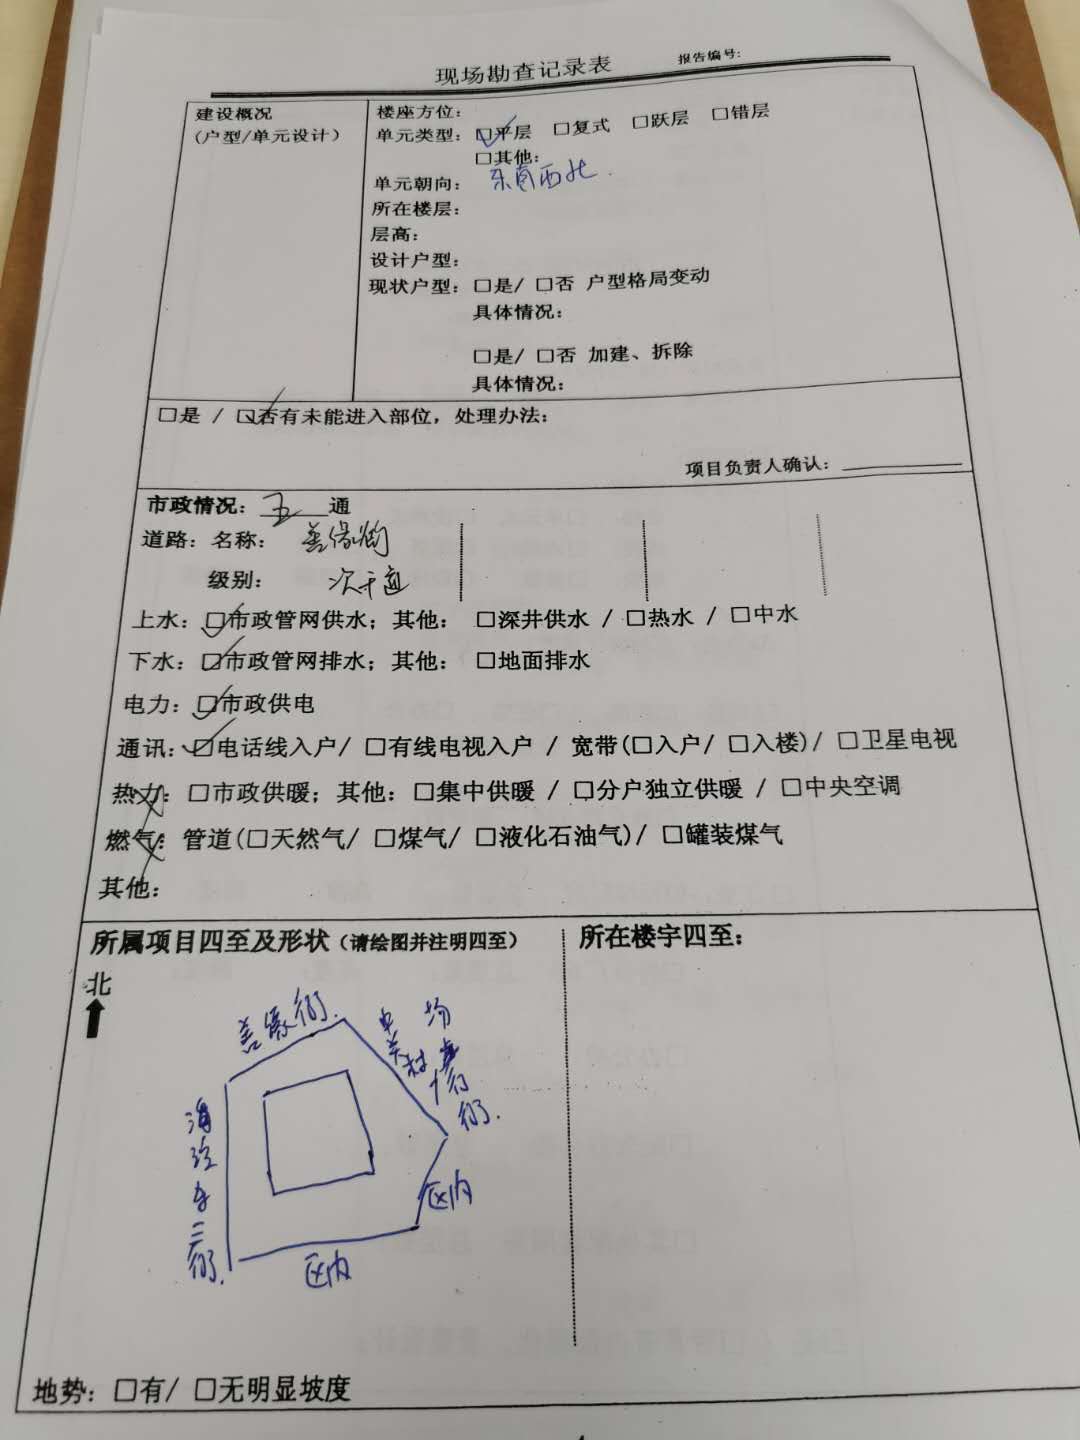 现场勘查记录表 报告编号:
建设概况
(户型/单元设计)
楼座方位:
单元类型: ☑平层 □复式 □跃层 □错层
□其他:
单元朝向: 东南西北.
所在楼层:
层高:
设计户型:
现状户型: □是/ □否 户型格局变动
具体情况:
□是/ □否 加建、拆除
具体情况:
□是 / ☑否有未能进入部位, 处理办法:
项目负责人确认:
市政情况: 五 通
道路: 名称: 善缘街
级别: 次干道
上水: ☑市政管网供水; 其他: □深井供水 / □热水 / □中水
下水: ☑市政管网排水; 其他: □地面排水
电力: ☑市政供电
通讯: ☑电话线入户/ □有线电视入户 / 宽带(□入户/ □入楼)/ □卫星电视
热力: □市政供暖; 其他: □集中供暖 / □分户独立供暖 / □中央空调
燃气: 管道(□天然气/ □煤气/ □液化石油气)/ □罐装煤气
其他:
所属项目四至及形状 (请绘图并注明四至)
北
善缘街.
中关村
街.
海淀
二街.
区内
区内
所在楼宇四至:
地势: □有/ □无明显坡度